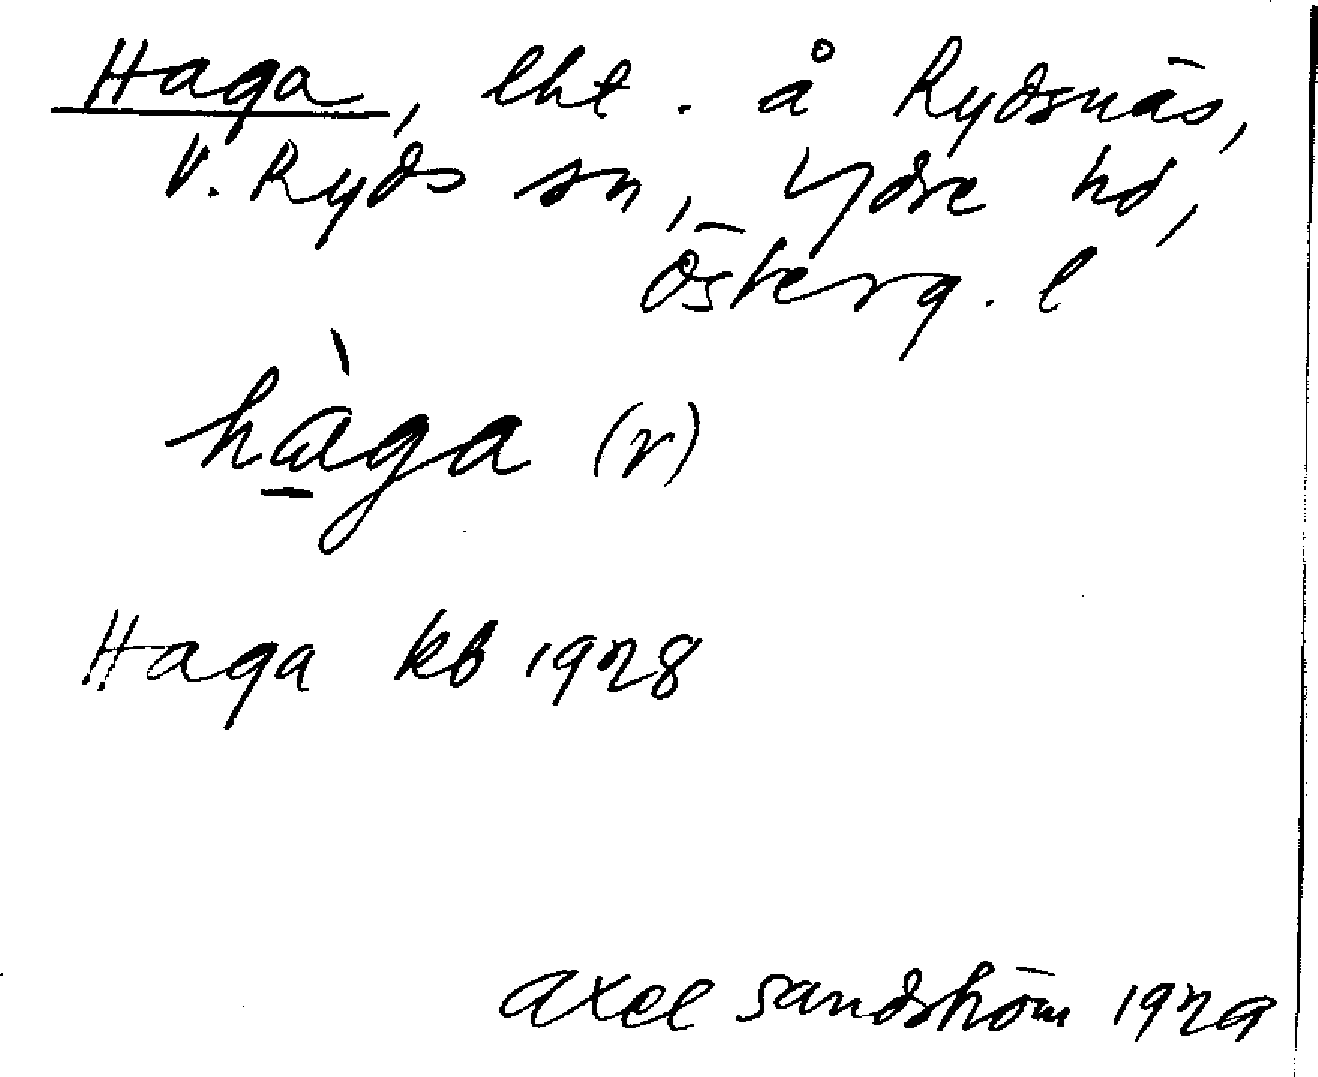 Haga, lht. å Rydsnäs,
V. Ryds sn, Ydre hd,
Österg. l
hàga (r)
Haga kb 1928
Axel Sandström 1929